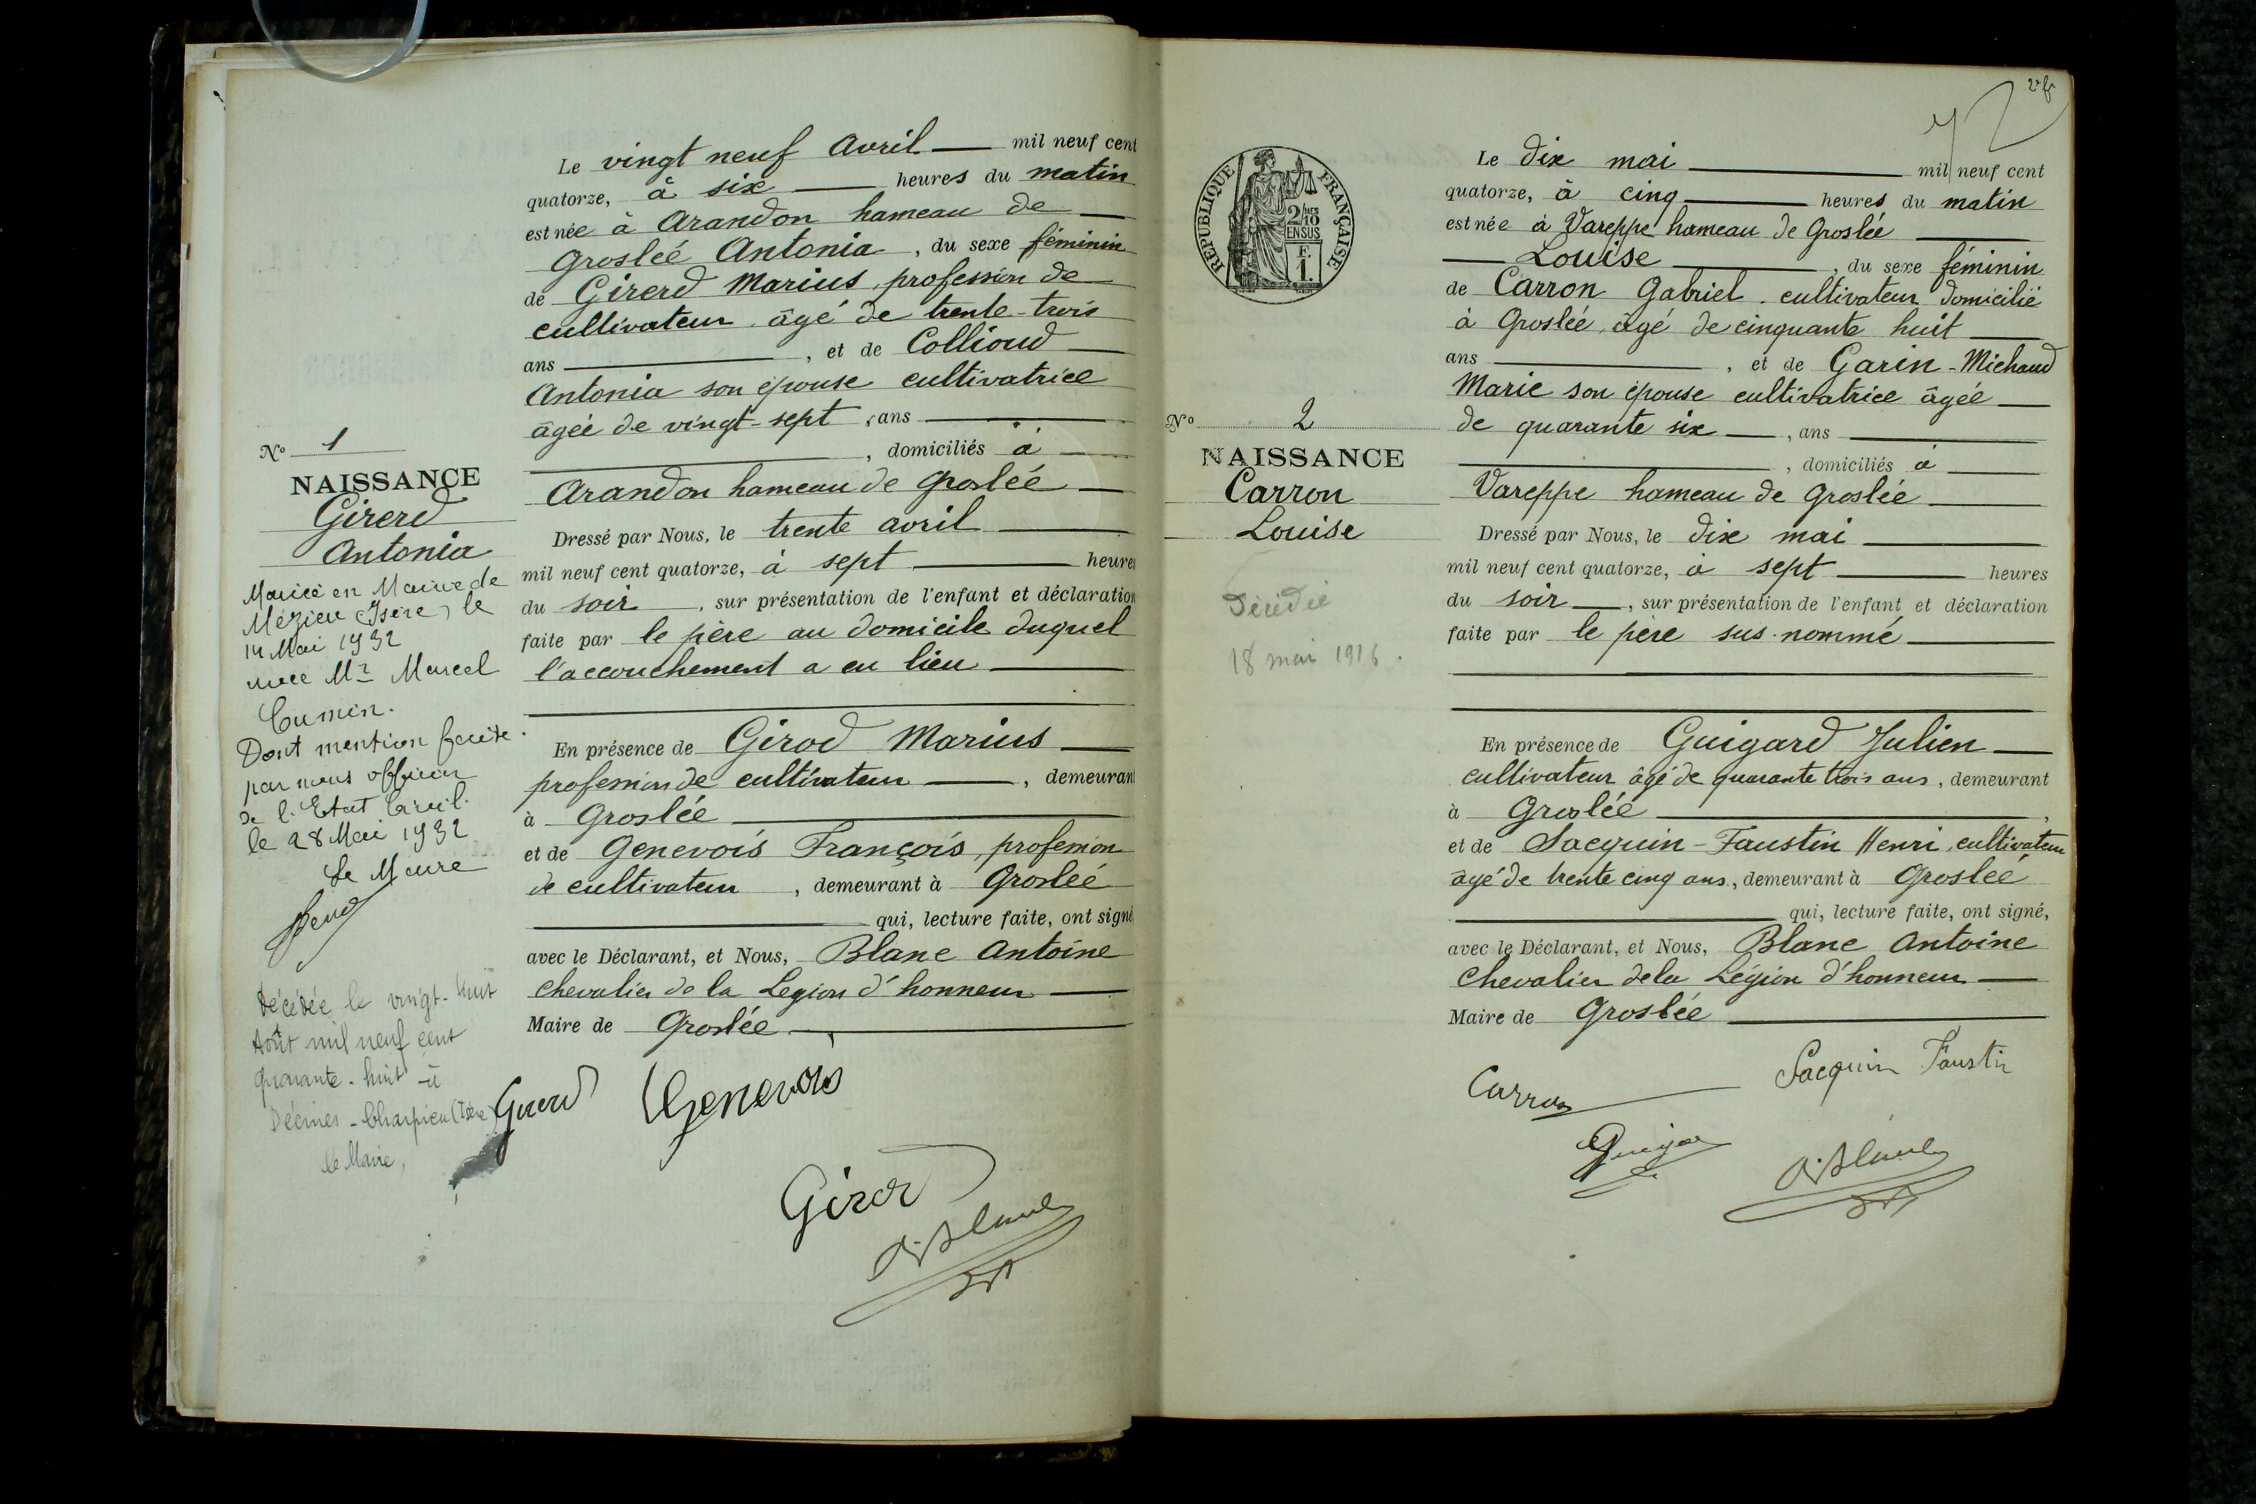 Le vingt neuf Avril mil neuf cent
quatorze, à six heures du matin
est née à Arandon hameau de
Groslée Antonia, du sexe féminin
de Girerd Marius, profession de
cultivateur âgé de trente-trois
ans, et de Collioud
Antonia son épouse cultivatrice
âgée de vingt-sept, ans
, domiciliés à
Arandon hameau de Groslée
Dressé par Nous, le trente avril
mil neuf cent quatorze, à sept heures
du soir, sur présentation de l'enfant et déclaration
faite par le père au domicile duquel
l'accouchement a eu lieu
En présence de Girod Marius
profession de cultivateur, demeurant
à Groslée
et de Genevois François, profession
de cultivateur, demeurant à Groslée
qui, lecture faite, ont signé
avec le Déclarant, et Nous, Blanc Antoine
Chevalier de la Legion d'honneur
Maire de Groslée
Girerd Genevois
Girod
A. Blanc
No 1
NAISSANCE
Girerd
Antonia
Mariée en Mairie de
Mézieu (Isère) le
14 Mai 1932
avec Mr Marcel
Cumin.
Dont mention faite
par nous officier
de l'Etat Civil.
le 28 Mai 1932
Le Maire
Décédée le vingt-huit
Août mil neuf cent
quarante-huit à
Décines-Charpieu (Isère)
le Maire,
2 f
2
RÉPUBLIQUE FRANÇAISE
2/10
EN SUS
F.
1.
No 2
NAISSANCE
Carron
Louise
Décédée
18 mai 1916.
Le dix mai mil neuf cent
quatorze, à cinq heures du matin
est née à Vareppe hameau de Groslée
Louise, du sexe féminin
de Carron Gabriel, cultivateur domicilié
à Groslée, âgé de cinquante huit
ans, et de Garin-Michaud
Marie son épouse cultivatrice âgée
de quarante six, ans
, domiciliés à
Vareppe hameau de Groslée
Dressé par Nous, le dix mai
mil neuf cent quatorze, à sept heures
du soir, sur présentation de l'enfant et déclaration
faite par le père sus-nommé
En présence de Guigard Julien
cultivateur âgé de quarante trois ans, demeurant
à Groslée,
et de Sacquin-Faustin Henri, cultivateur
âgé de trente cinq ans, demeurant à Groslée
qui, lecture faite, ont signé,
avec le Déclarant, et Nous, Blanc Antoine
Chevalier de la Légion d'honneur
Maire de Groslée
Carron Sacquin Faustin
Guigard A. Blanc